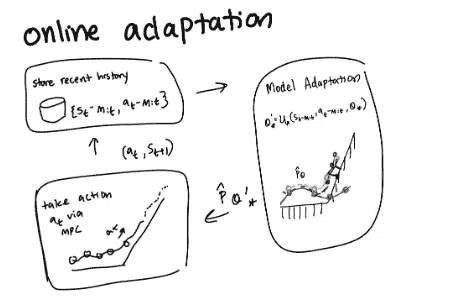 online adaptation
store recent history
{s_t-m:t, a_t-m:t}
Model Adaptation
θ'_* = U_ψ(s_t-m:t, a_t-m:t, θ_*)
p̂_θ
(a_t, s_t+1)
p̂ θ'_*
take action
a_t via
MPC